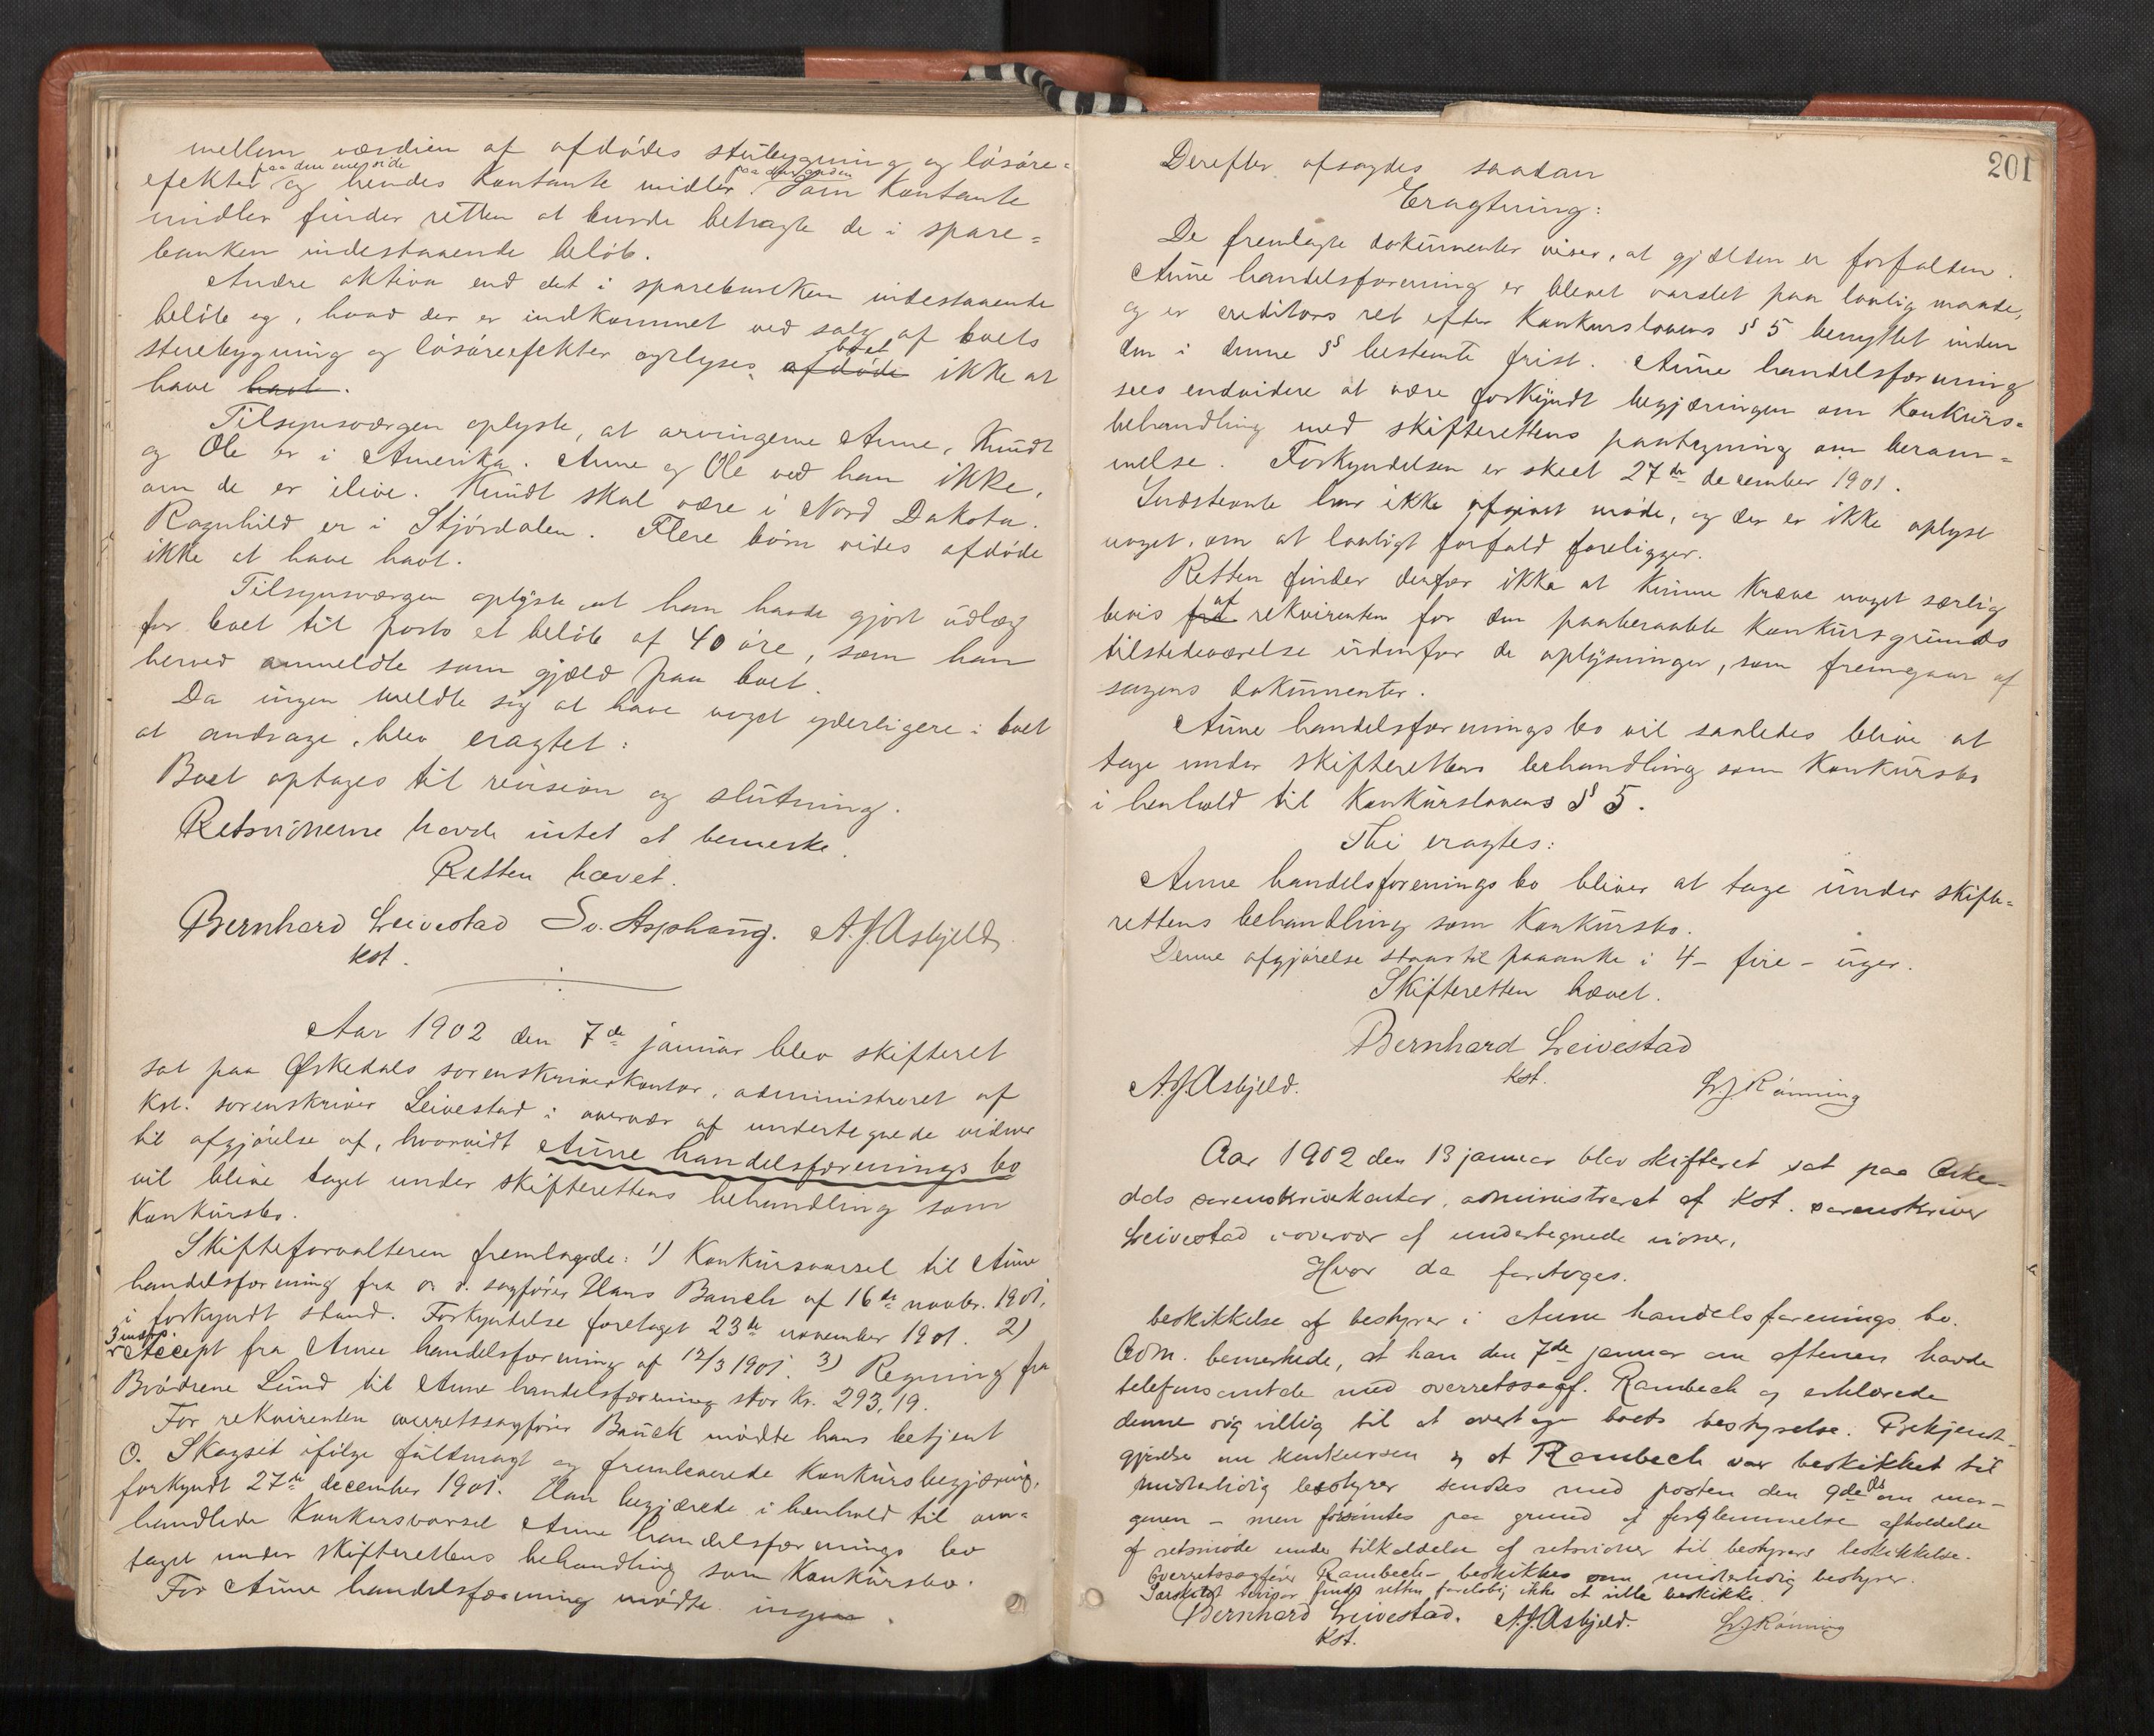 mellem værdien af afdødes stuebygning og løsøre=
paa den ene side paa den anden
efekter og hendes kontante midler. Som kontante
midler finder retten at burde betragte de i spare=
banken indestaaende beløb.
Andre aktiva end det i sparebanken indestaaende
beløb og, hvad der er indkommet ved salg af boets
stuebygning og løsøreefekter oplyses boet afdøde ikke at
have havt.
Tilsynsværgen oplyste, at arvingerne Anne, Knudt
og Ole er i Amerika. Anne og Ole ved han ikke,
om de er ilive. Knudt skal være i Nord Dakota.
Ragnhild er i Stjørdalen. Flere børn vides afdøde
ikke at have havt.
Tilsynsværgen oplyste at han havde gjort udlæg
for boet til porto et beløb af 40 øre, som han
herved anmeldte som gjæld paa boet.
Da ingen meldte sig at have noget yderligere i boet
at andrage, blev eragtet:
Boet optages til revision og slutning.
Retsvidnerne havde intet at bemerke.
Retten hævet.
Bernhard Leivestad Sv. Asphaug. A.J. Asbjeld
kst.
Aar 1902 den 7de januar blev skifteret
sat paa Ørkedals sorenskriverkontor, administreret af
kst. sorenskriver Leivestad i overvær af undertegnede vidner
til afgjørelse af, hvorvidt Aune handelsforenings bo
vil blive taget under skifterettens behandling som
konkursbo.
Skifteforvalteren fremlagde: 1) Konkursvarsel til Aune
handelsforening fra o. r. sagfører Hans Bauck af 16de novbr. 1901,
i forkyndt stand. Forkyndelse foretaget 23de november 1901. 2)
Accept fra Aune handelsforening af 12/3 1901. 3) Regning fra
Brødrene Lund til Aune handelsforening stor kr. 293,19.
For rekvirenten overretssagfører Bauck mødte hans betjent
O. Skagset ifølge fuldmagt og fremleverede konkursbegjæring,
forkyndt 27de december 1901. Han begjærede i henhold til om=
handlede konkursvarsel Aune handelsforenings bo
taget under skifterettens behandling som konkursbo.
For Aune handelsforening mødte ingen.
201
Derefter afsagdes saadan
Eragtning:
De fremlagte dokumenter viser, at gjælden er forfalden.
Aune handelsforening er blevet varslet paa lovlig maade,
og er creditors ret efter konkurslovens § 5 benyttet inden
den i denne § bestemte frist. Aune handelsforening
sees endvidere at være forkyndt begjæringen om konkurs=
behandling med skifterettens paategning om beram=
melse. Forkyndelsen er skeet 27de december 1901.
Indstevnte har ikke afgivet møde, og der er ikke oplyst
noget, om at lovligt forfald foreligger.
Retten finder derfor ikke at kunne kræve noget særlig
bevis fra af rekvirenten for den paaberaabte konkursgrunds
tilstedeværelse udenfor de oplysninger, som fremgaar af
sagens dokumenter.
Aune handelsforenings bo vil saaledes blive at
tage under skifterettens behandling som konkursbo
i henhold til konkurslovens § 5.
Thi eragtes:
Aune handelsforenings bo bliver at tage under skifte=
rettens behandling som konkursbo.
Denne afgjørelse staar til paaanke i 4 - fire - uger.
Skifteretten hævet.
Bernhard Leivestad
kst.
A.J. Asbjeld. Rønning
Aar 1902 den 13 januar blev skifteret sat paa Ørke-
dals sorenskriverkontor, administreret af kst. sorenskriver
Leivestad i overvær af undertegnede vidner,
Hvor da foretoges.
beskikkelse af bestyrer i Aune handelsforenings bo.
Adm. bemerkede, at han den 7de januar om aftenen havde
telefonsamtale med overretssagf. Rambech og erklærede
denne sig villig til at overtage boets bestyrelse. Bekjendt-
gjørelse om konkursen og at Rambech var beskikket til
midlertidig bestyrer sendtes med posten den 9de ds om mor-
genen - men forsømtes paa grund af forglemmelse afholdelse
af retsmøde under tilkaldelse af retsvidner til bestyrers beskikkelse.
Overretssagfører Rambech beskikkes som midlertidig bestyrer.
Særskilt revisor finder retten foreløbig ikke at ville beskikke.
Bernhard Leivestad. A.J. Asbjeld. Rønning
kst.